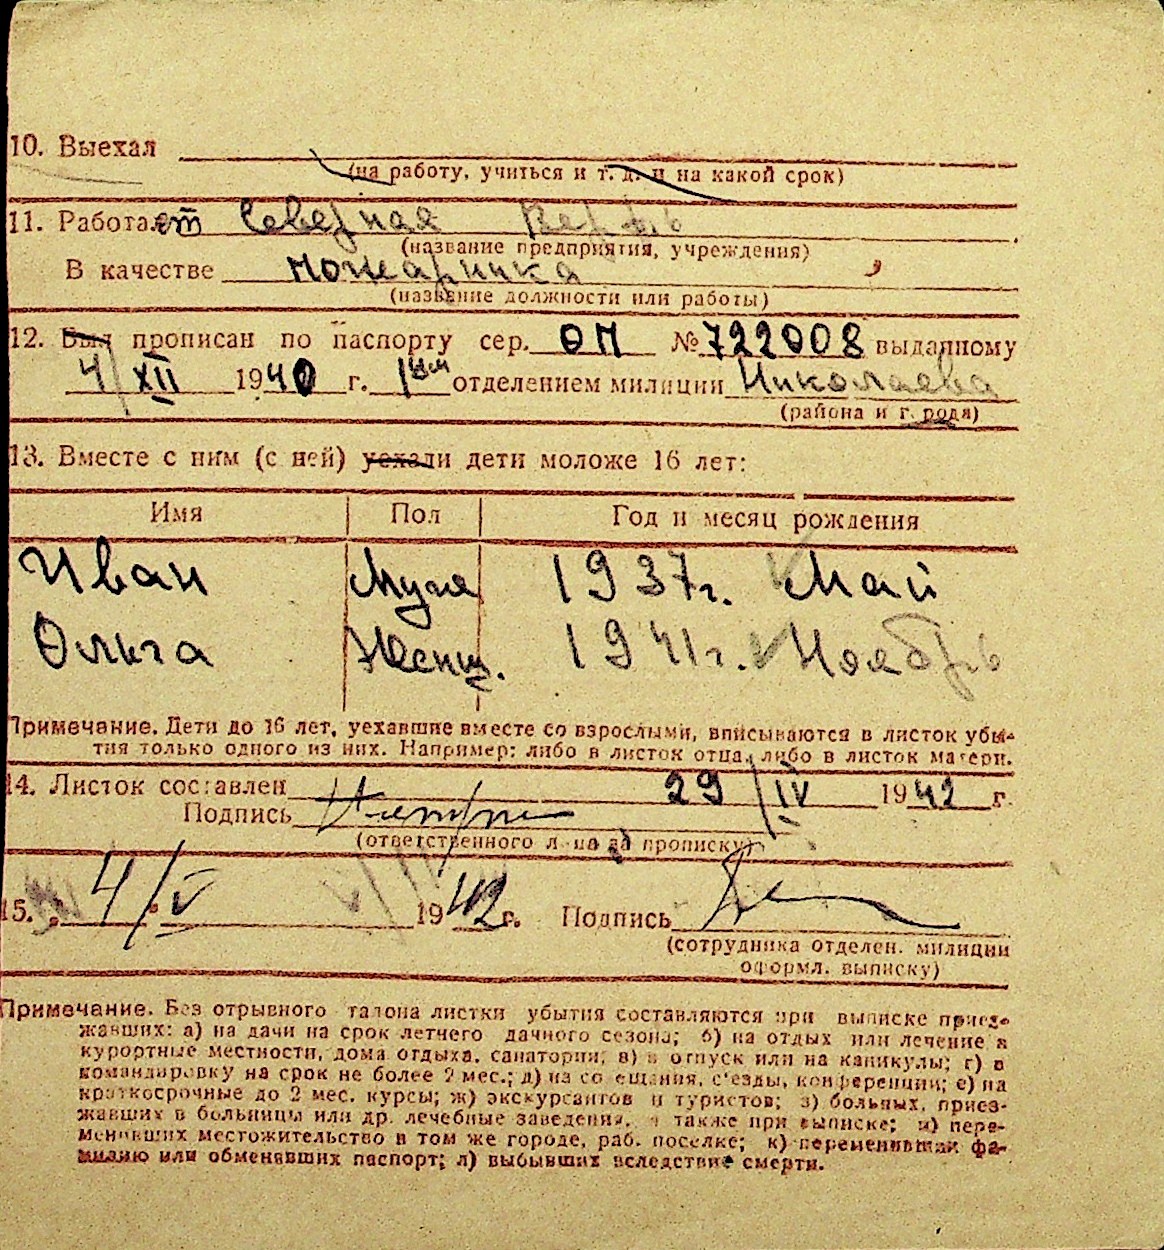 10. Выехал
(на работу, учиться и т. д. и на какой срок)
11. Работает Северная Верфь
(название предприятия, учреждения)
В качестве пожарника
(название должности или работы)
12. Был прописан по паспорту сер. ОП № 722008 выданному
4/XII 1940 г. 1ым отделением милиции Николаева
(района и города)
13. Вместе с ним (с ней) уехали дети моложе 16 лет:
Имя Пол Год и месяц рождения
Иван Муж 1937г. Май
Ольга Женщ. 1941г. Ноябрь
Примечание. Дети до 16 лет, уехавшие вместе со взрослыми, вписываются в листок убы-
тия только одного из них. Например: либо в листок отца, либо в листок матери.
14. Листок составлен 29/IV 1942 г.
Подпись
(ответственного лица за прописку)
15. 4/V 1942 г. Подпись
(сотрудника отделен. милиции
оформл. выписку)
Примечание. Без отрывного талона листки убытия составляются при выписке приез-
жавших: а) на дачи на срок летнего дачного сезона; б) на отдых или лечение в
курортные местности, дома отдыха, санатории; в) в отпуск или на каникулы; г) в
командировку на срок не более 2 мес.; д) на совещания, с'езды, конференции; е) на
краткосрочные до 2 мес. курсы; ж) экскурсантов и туристов; з) больных, приез-
жавших в больницы или др. лечебные заведения, а также при выписке; и) пере-
менивших местожительство в том же городе, раб. поселке; к) переменивших фа-
милию или обменявших паспорт; л) выбывших вследствие смерти.